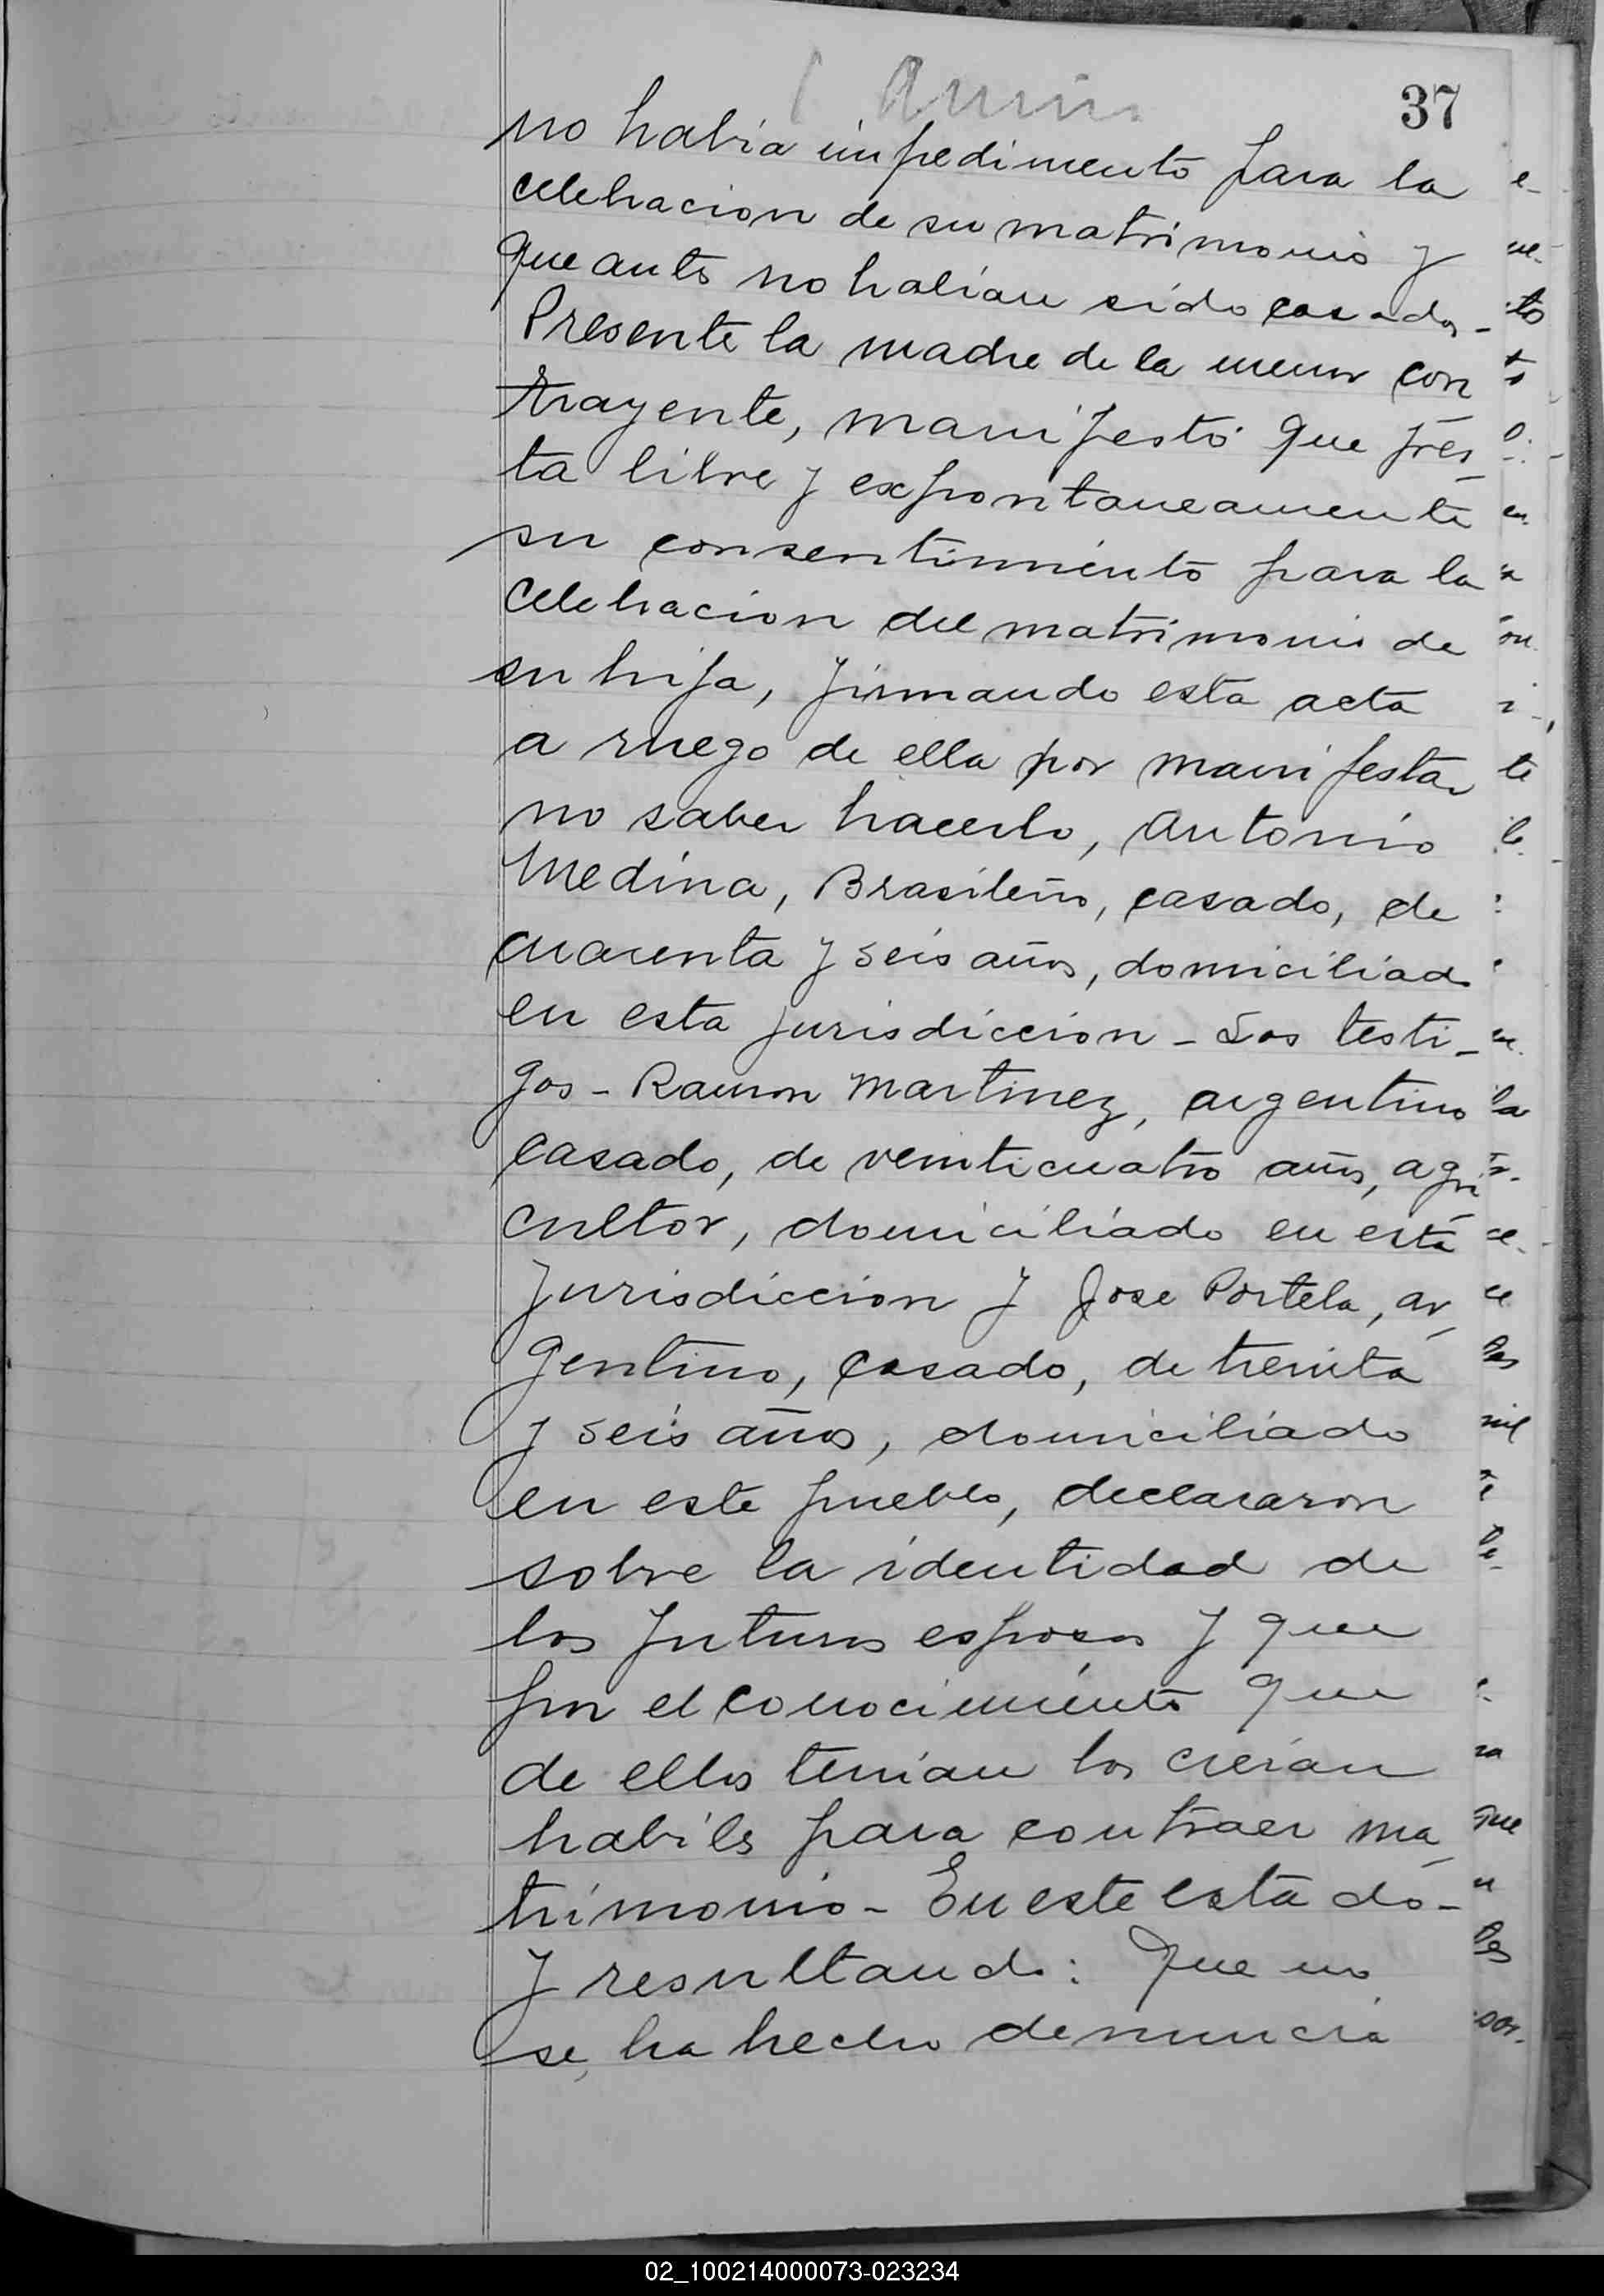 37
no habia impedimento para la
celebracion de su matrimonio y
que antes no habian sido casados -
Presente la madre de la menor con
trayente, manifestó que pres_
ta libre y expontaneamente
su consentimiento para la
celebracion del matrimonio de
su hija, firmando esta acta
a ruego de ella por manifestar
no saber hacerlo, Antonio
Medina, Brasileño, casado, de
cuarenta y seis años, domiciliado
en esta jurisdiccion - Los testi_
gos - Ramon Martinez, argentino
casado, de veinticuatro años, agri
cultor, domiciliado en esta
jurisdiccion y Jose Portela, ar_
gentino, casado, de treinta
y seis años, domiciliado
en este pueblo, declararon
sobre la identidad de
los futuros esposos y que
por el conocimiento que
de ellos tenian los creian
habiles para contraer ma_
trimonio - En este estado -
y resultando: Que no
se ha hecho denuncia
02_100214000073-023234